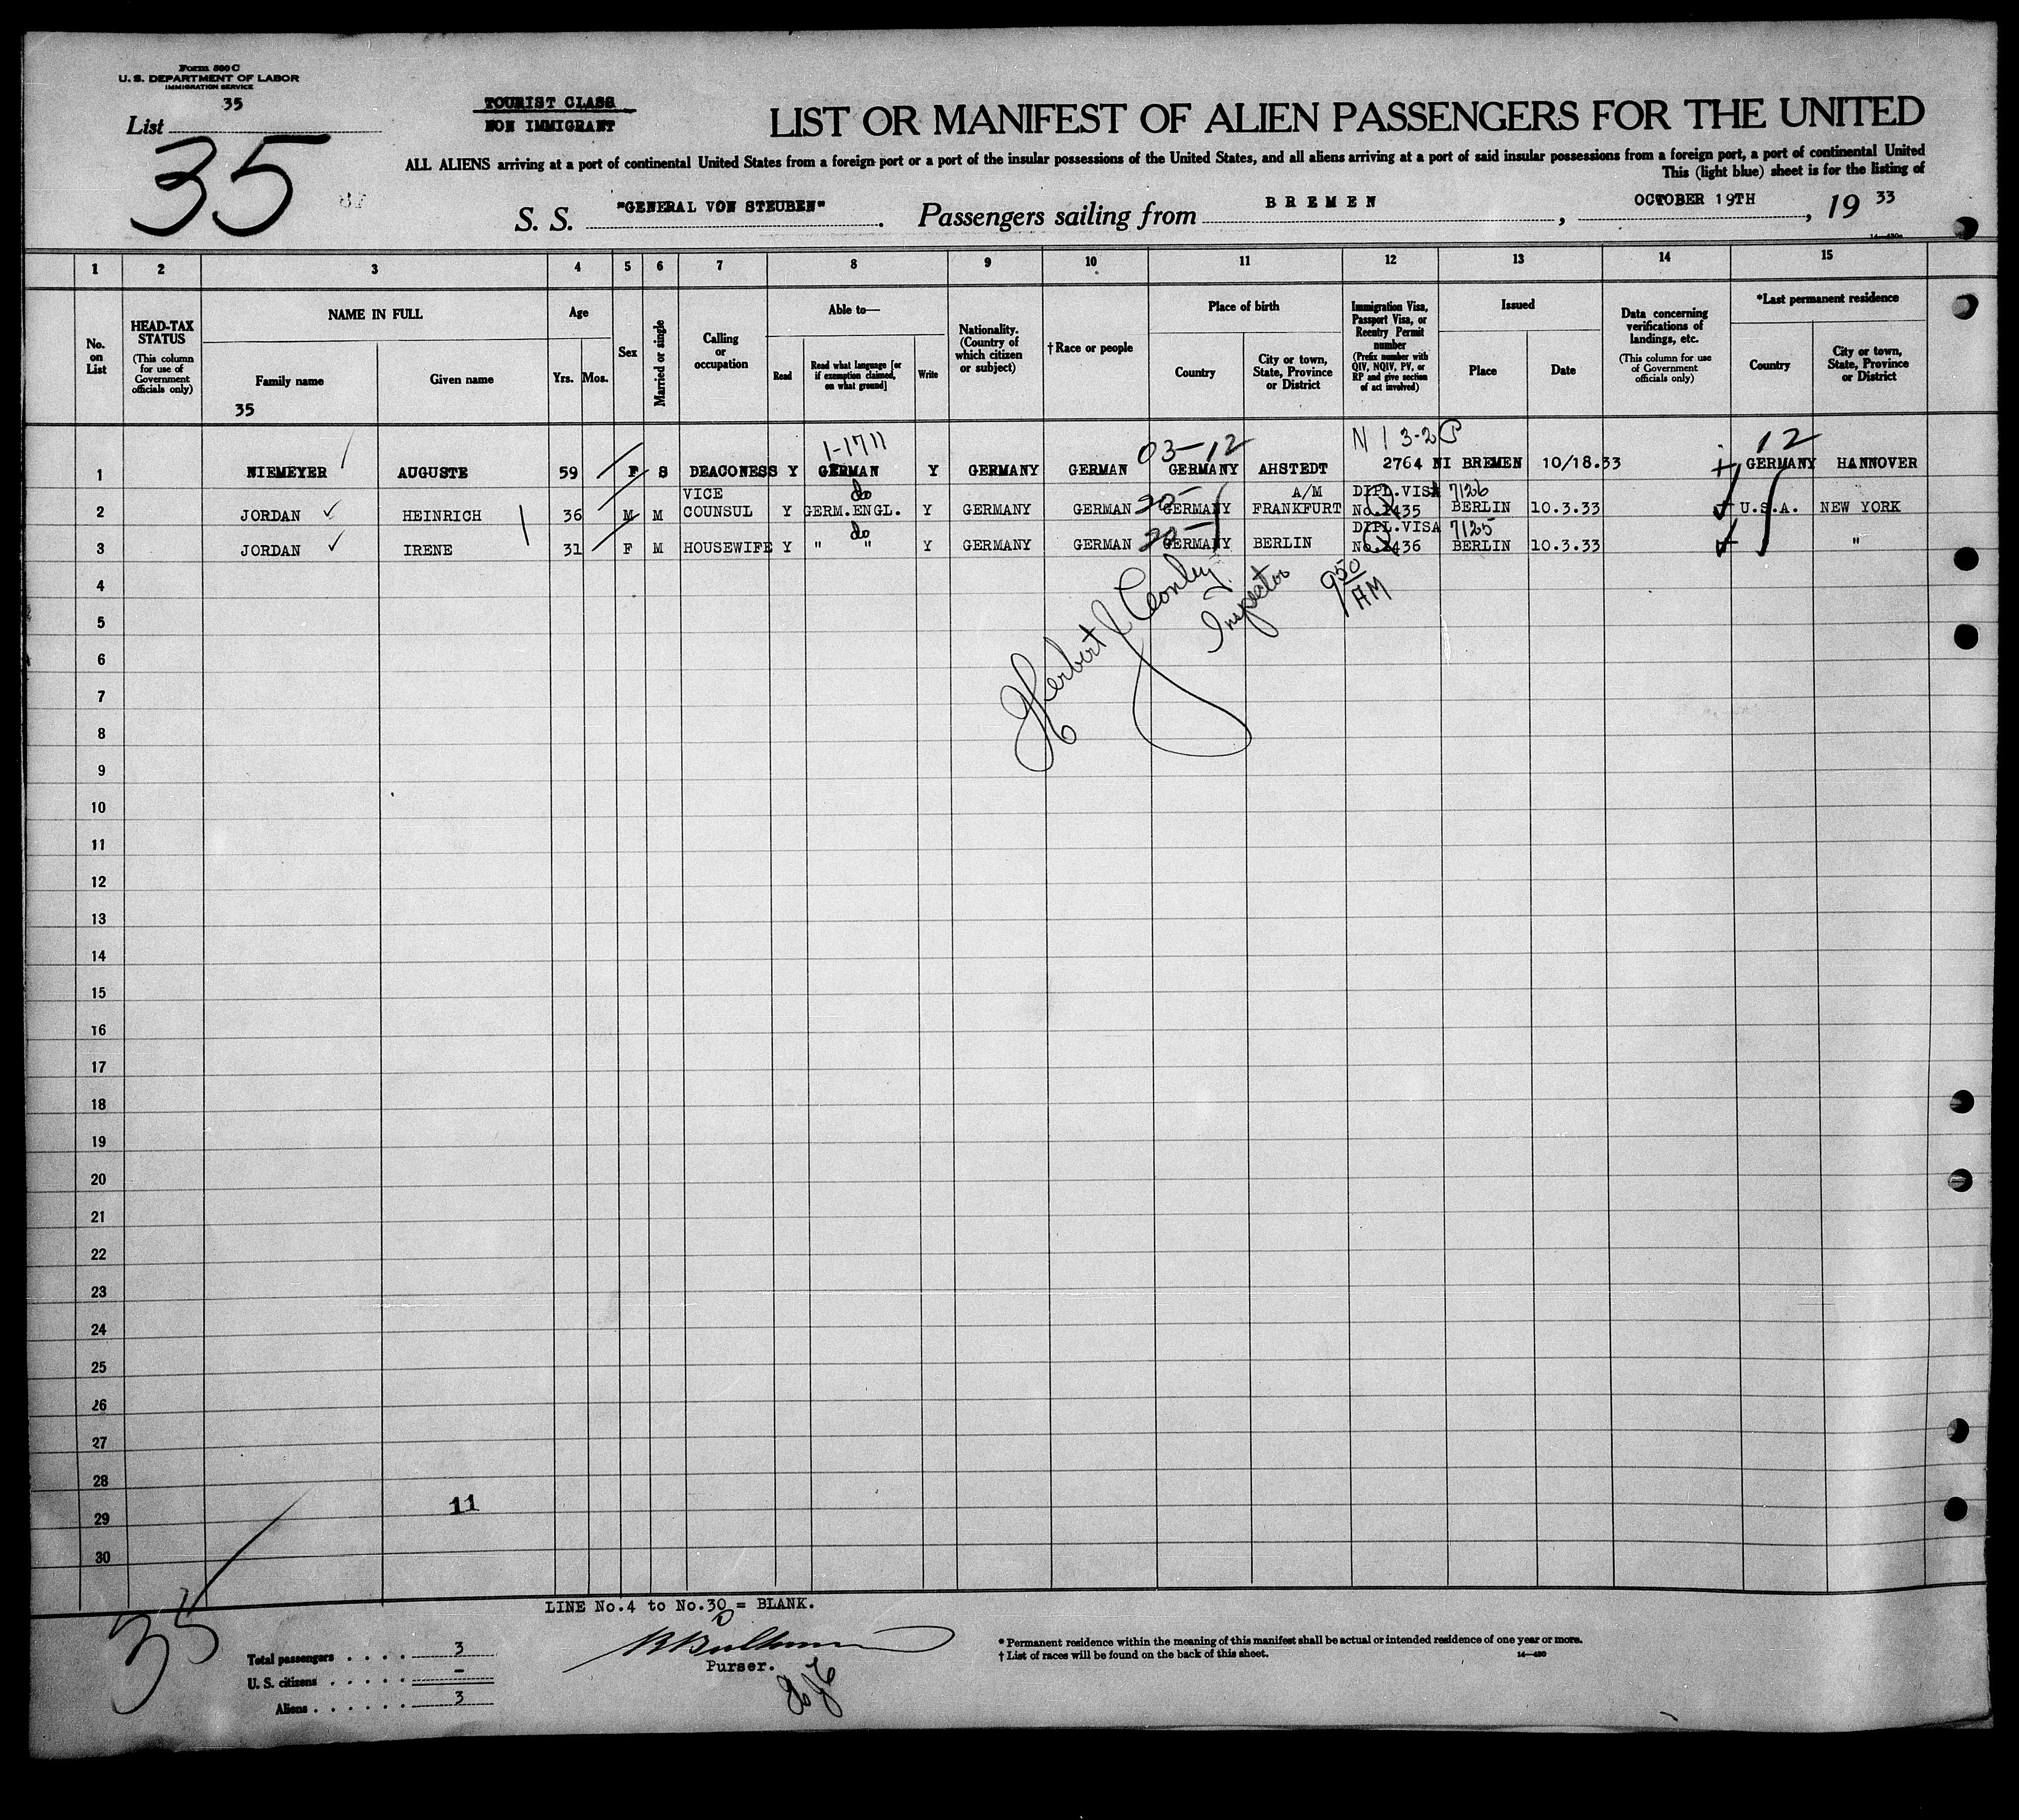 Form 500 C
U. S. DEPARTMENT OF LABOR
IMMIGRATION SERVICE
List 35
35
TOURIST CLASS
NON IMMIGRANT
LIST OR MANIFEST OF ALIEN PASSENGERS FOR THE UNITED
ALL ALIENS arriving at a port of continental United States from a foreign port or a port of the insular possessions of the United States, and all aliens arriving at a port of said insular possessions from a foreign port, a port of continental United
This (light blue) sheet is for the listing of
S. S. "GENERAL VON STEUBEN". Passengers sailing from BREMEN, OCTOBER 19TH, 19 33
1 2 3 4 5 6 7 8 9 10 11 12 13 14 15
No. on List
HEAD-TAX STATUS
(This column for use of Government officials only)
NAME IN FULL
Family name
Given name
35
Age
Yrs. Mos.
Sex
Married or single
Calling or occupation
Able to—
Read
Read what language [or if exemption claimed, on what ground]
Write
Nationality. (Country of which citizen or subject)
†Race or people
Place of birth
Country
City or town, State, Province or District
Immigration Visa, Passport Visa, or Reentry Permit number
(Prefix number with QIV, NQIV, PV, or RP and give section of act involved)
Issued
Place
Date
Data concerning verifications of landings, etc.
(This column for use of Government officials only)
*Last permanent residence
Country
City or town, State, Province or District
1-1711 03-12 12
1 NIEMEYER AUGUSTE 59 F S DEACONESS Y GERMAN Y GERMANY GERMAN GERMANY AHSTEDT 2764 NI BREMEN 10/18.33 GERMANY HANNOVER
VICE do A/M DIPL.VISA 7126
2 JORDAN HEINRICH 36 M M COUNSUL Y GERM.ENGL. Y GERMANY GERMAN GERMANY FRANKFURT BERLIN 10.3.33 U.S.A. NEW YORK
do DIPL.VISA 7125
3 JORDAN IRENE 31 F M HOUSEWIFE Y " " Y GERMANY GERMAN GERMANY BERLIN BERLIN 10.3.33 "
4
5
6
7
8
9
10
11
12
13
14
15
16
17
18
19
20
21
22
23
24
25
26
27
28
29
30
Herbert
Inspector
9 50 AM
11
LINE No.4 to No.30 = BLANK.
35
Purser.
Total passengers . . . . 3
U. S. citizens . . . . . –
Aliens . . . . . . 3
* Permanent residence within the meaning of this manifest shall be actual or intended residence of one year or more.
† List of races will be found on the back of this sheet.
14—430